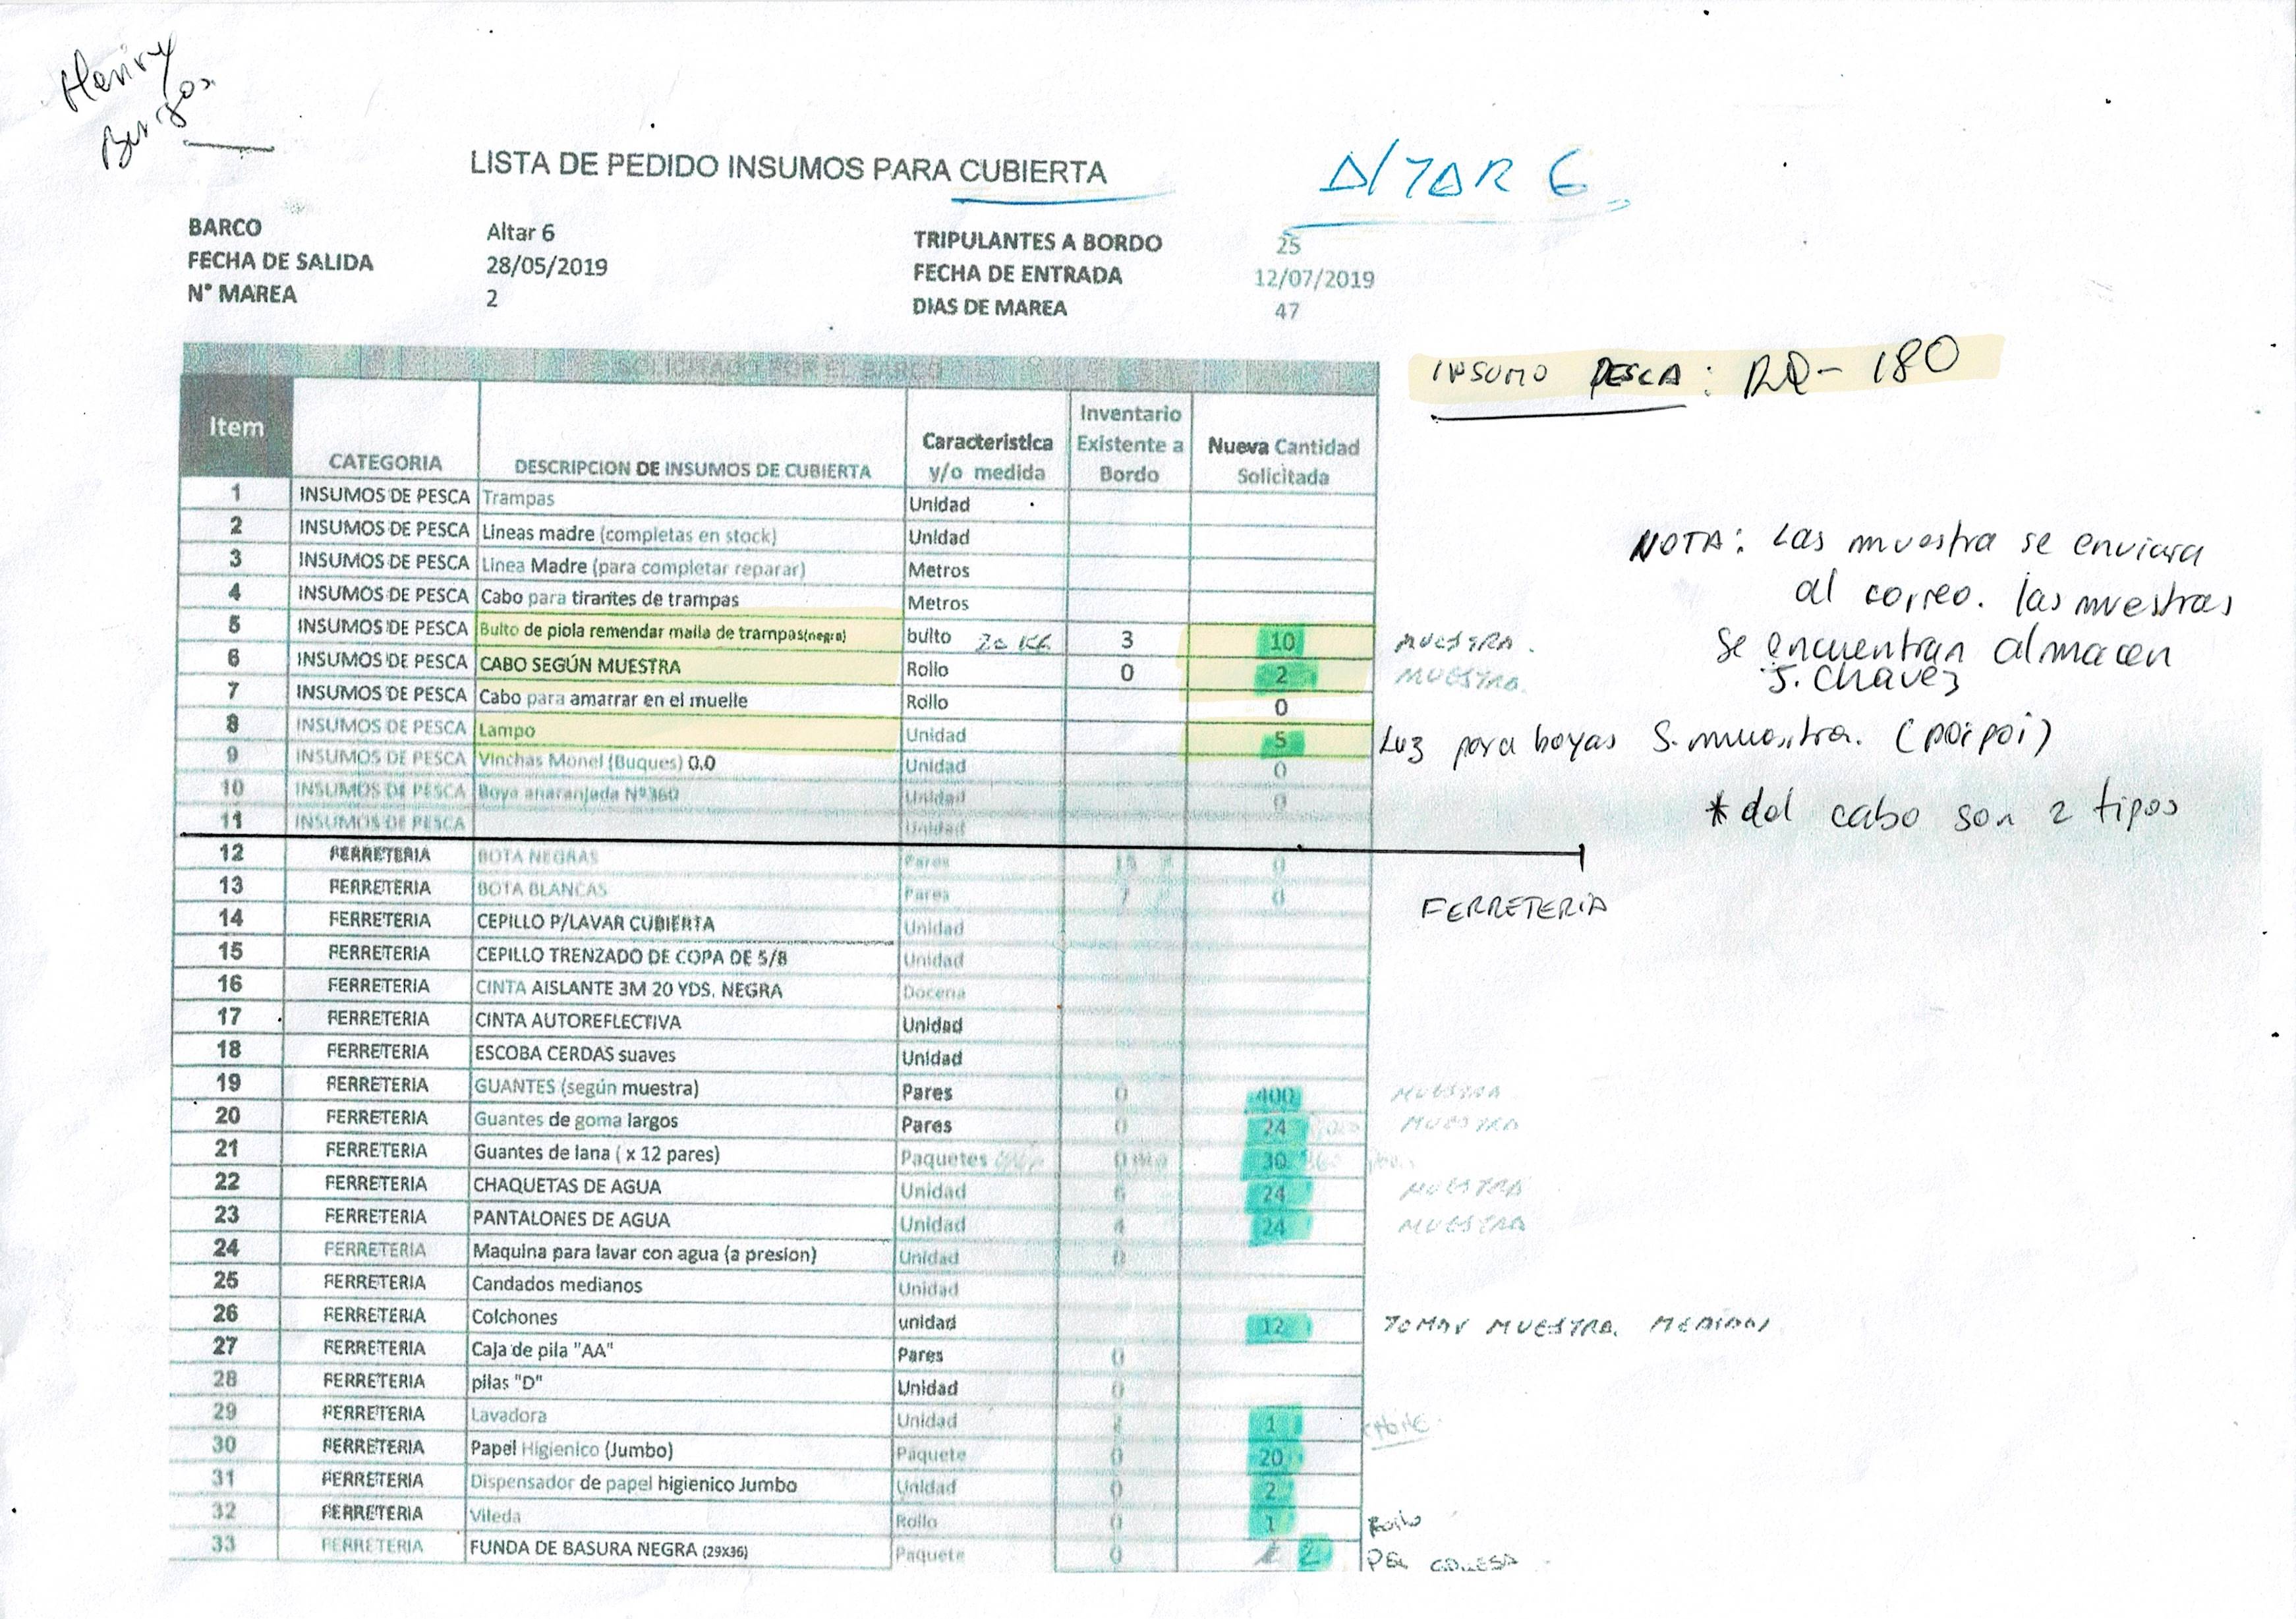 Henry
LISTA DE PEDIDO INSUMOS PARA CUBIERTA
Altar 6
BARCO Altar 6 TRIPULANTES A BORDO 25
FECHA DE SALIDA 28/05/2019 FECHA DE ENTRADA 12/07/2019
N° MAREA 2 DIAS DE MAREA 47
SOLICITADO POR EL BARCO
INSUMO PESCA: RQ-180
Item CATEGORIA DESCRIPCION DE INSUMOS DE CUBIERTA Caracteristica y/o medida Inventario Existente a Bordo Nueva Cantidad Solicitada
1 INSUMOS DE PESCA Trampas Unidad
2 INSUMOS DE PESCA Lineas madre (completas en stock) Unidad
3 INSUMOS DE PESCA Linea Madre (para completar reparar) Metros
4 INSUMOS DE PESCA Cabo para tirantes de trampas Metros
5 INSUMOS DE PESCA Bulto de piola remendar malla de trampas(negra) bulto 20 KG. 3 10 MUESTRA.
6 INSUMOS DE PESCA CABO SEGÚN MUESTRA Rollo 0 2 MUESTRA.
7 INSUMOS DE PESCA Cabo para amarrar en el muelle Rollo 0
8 INSUMOS DE PESCA Lampo Unidad 5 Luz para boyas S. muestra. (poipoi)
9 INSUMOS DE PESCA Vinchas Monel (Buques) 0.0 Unidad 0
10 INSUMOS DE PESCA Boya anaranjada N°360 Unidad 0
11 INSUMOS DE PESCA Unidad
NOTA: Las muestra se enviara
al correo. las muestras
se encuentran almacen
J. Chavez
*del cabo son 2 tipos
FERRETERIA
12 FERRETERIA BOTA NEGRAS Pares 15 0
13 FERRETERIA BOTA BLANCAS Pares 7 0
14 FERRETERIA CEPILLO P/LAVAR CUBIERTA Unidad
15 FERRETERIA CEPILLO TRENZADO DE COPA DE 5/8 Unidad
16 FERRETERIA CINTA AISLANTE 3M 20 YDS. NEGRA Docena
17 FERRETERIA CINTA AUTOREFLECTIVA Unidad
18 FERRETERIA ESCOBA CERDAS suaves Unidad
19 FERRETERIA GUANTES (según muestra) Pares 0 400 MUESTRA
20 FERRETERIA Guantes de goma largos Pares 0 24 MUESTRA
21 FERRETERIA Guantes de lana ( x 12 pares) Paquetes 0 30 360
22 FERRETERIA CHAQUETAS DE AGUA Unidad 6 24 MUESTRA
23 FERRETERIA PANTALONES DE AGUA Unidad 4 24 MUESTRA
24 FERRETERIA Maquina para lavar con agua (a presion) Unidad 0
25 FERRETERIA Candados medianos Unidad
26 FERRETERIA Colchones unidad 12 TOMAR MUESTRA. MEDIDAS
27 FERRETERIA Caja de pila "AA" Pares 0
28 FERRETERIA pilas "D" Unidad 0
29 FERRETERIA Lavadora Unidad 1
30 FERRETERIA Papel Higienico (Jumbo) Paquete 0 20
31 FERRETERIA Dispensador de papel higienico Jumbo Unidad 0 2
32 FERRETERIA Vileda Rollo 0 1 Rollo
33 FERRETERIA FUNDA DE BASURA NEGRA (29X36) Paquete 0 2